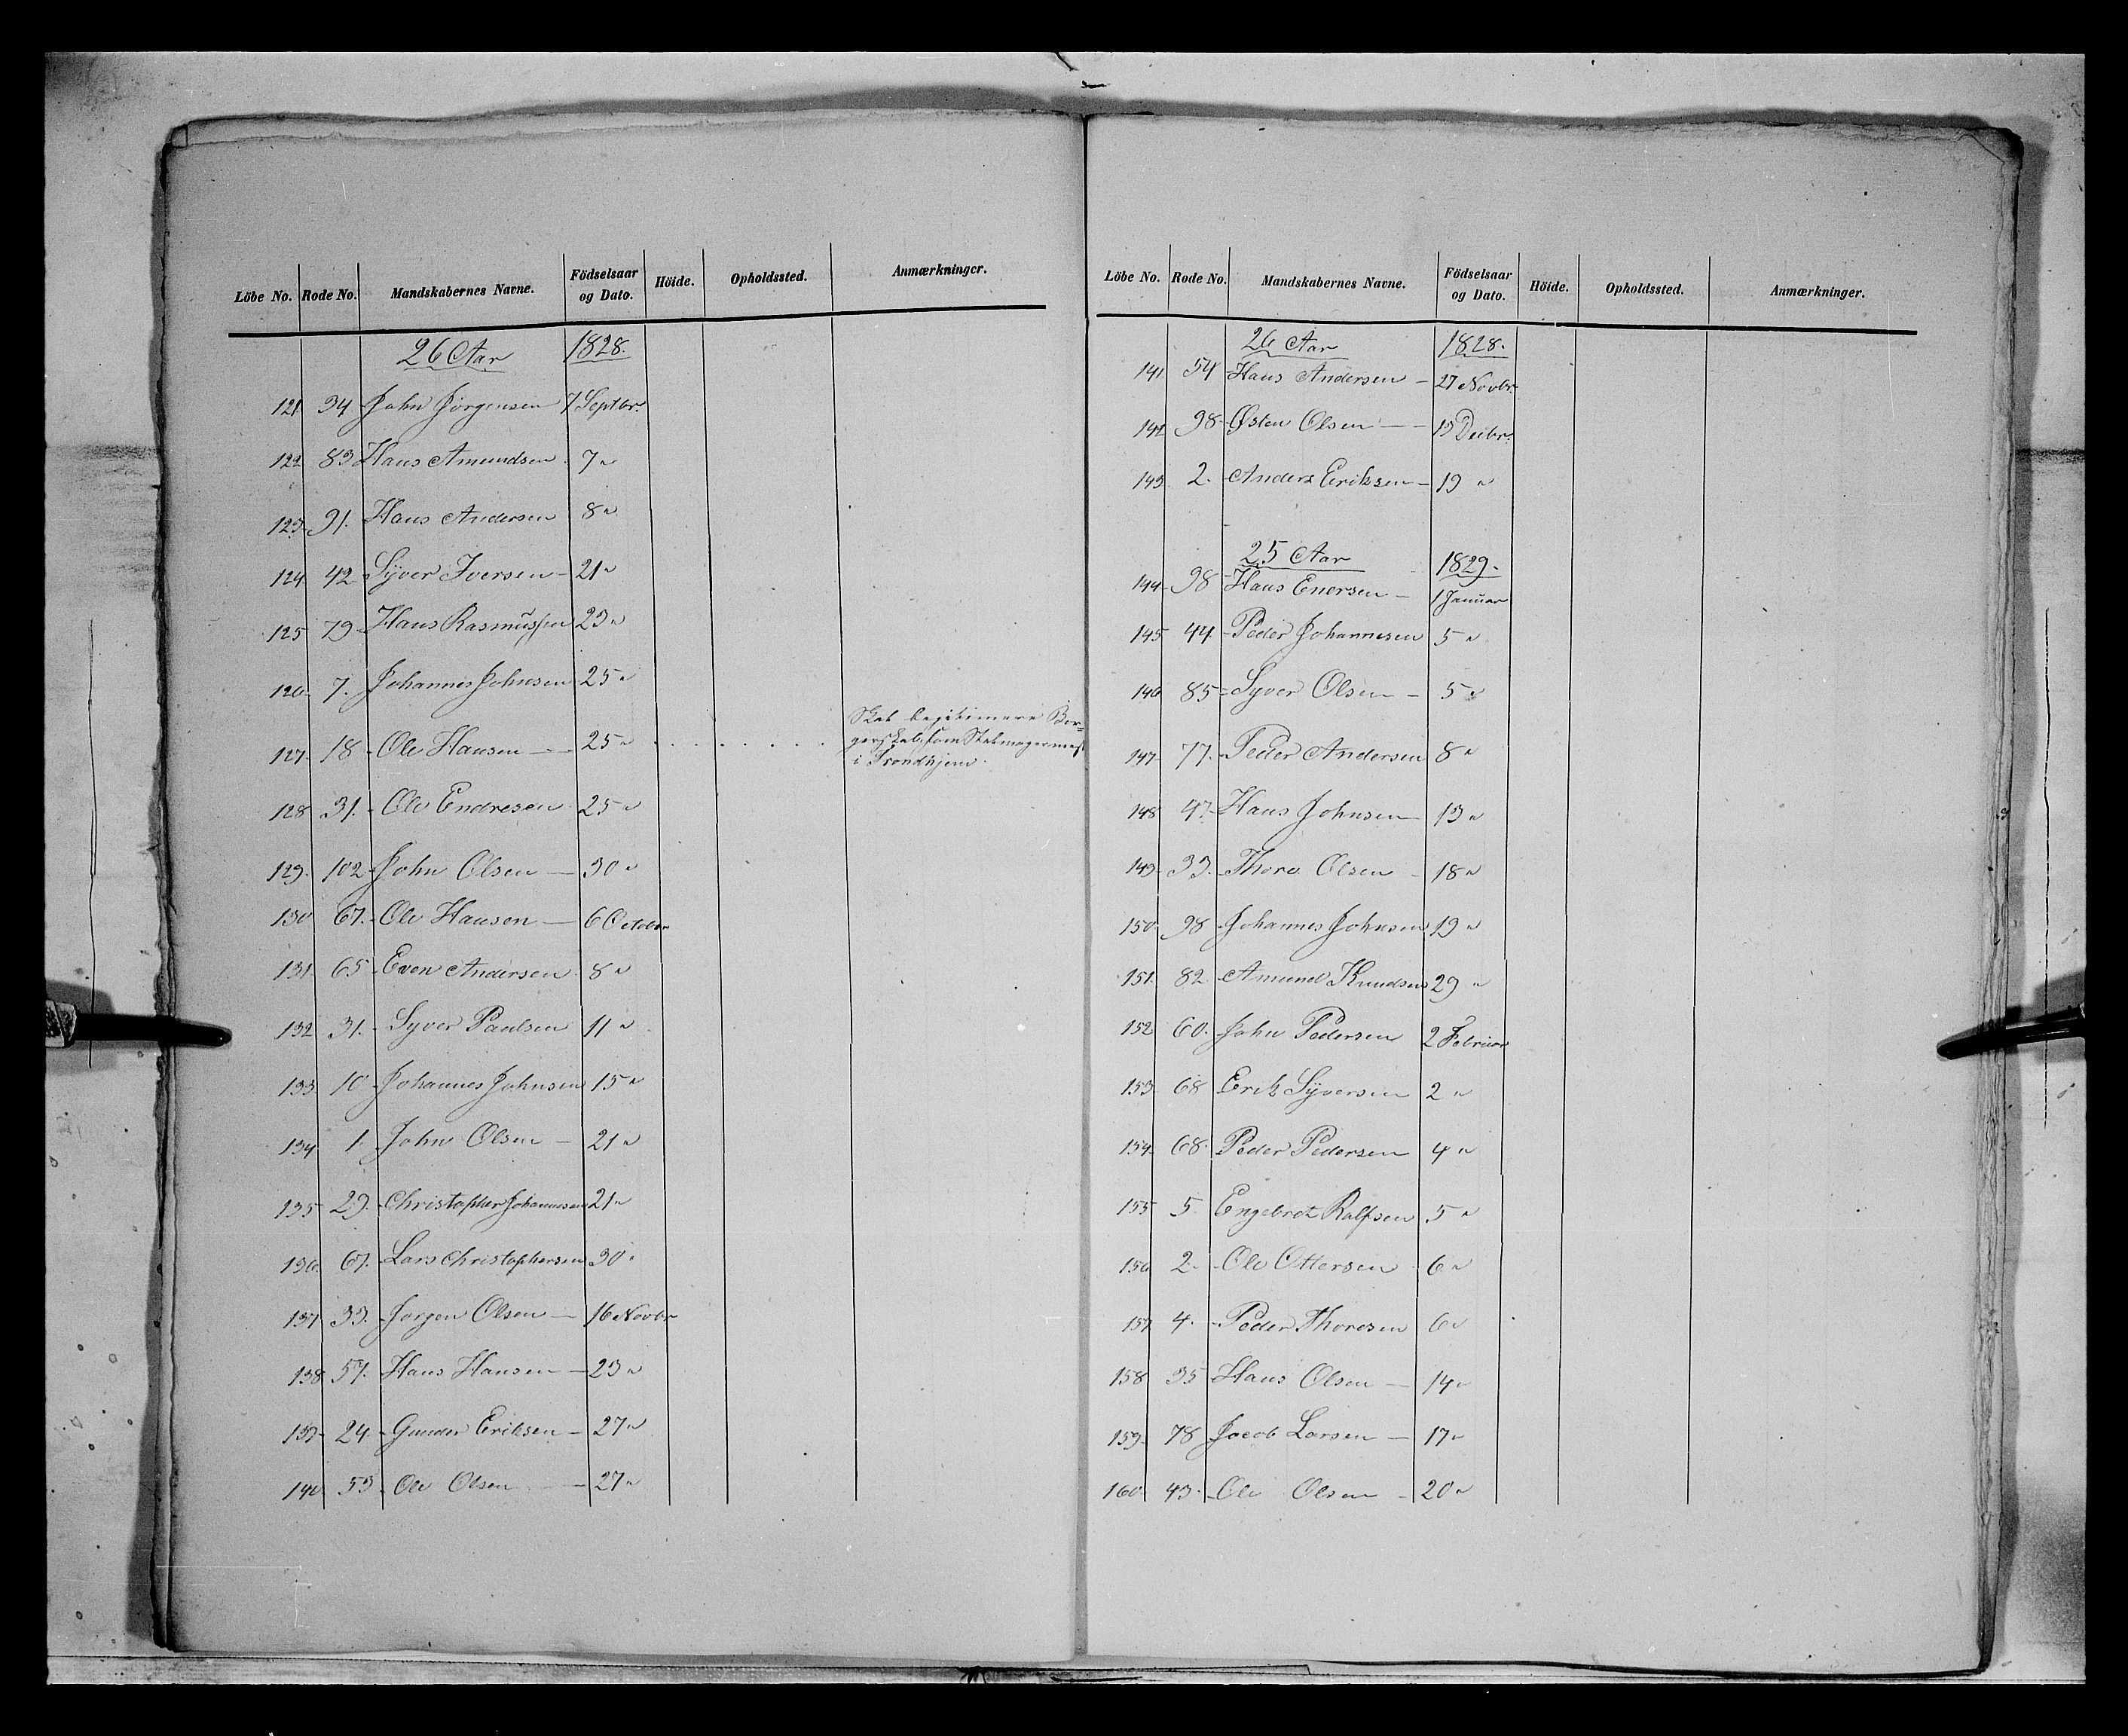 Löbe No. Rode No. Mandskabernes Navne. Födselsaar og Dato. Höide. Opholdssted. Anmærkninger.
26 Aar 1828.
121 34 John Jörgensen 7 Septbr.
122 83 Hans Amundsen 7 "
123 91. Hans Andersen 8 "
124 42 Syver Iversen - 21 "
125 79 Hans Rasmussen 23 "
126 7. Johannes Johnsen 25 "
127 18 Ole Hansen - 25 " . . . . . . . . Skal legitimere Bor-
gerskab som
i Trondhjem.
128 31. Ole Endresen 25 "
129. 102 John Olsen - 30 "
130 67. Ole Hansen - 6 October
131 65 Even Andersen 8 "
132 31. Syver Paulsen 11 "
133 10 Johannes Johnsen 15 "
134 1. John Olsen - 21 "
135 29. Christopher Johannessen 21 "
136. 67. Lars Christophersen 30 "
137 33. Jorgen Olsen - 16 Novbr
138 57. Hans Hansen - 23 "
139 24 Gunder Eriksen - 27 "
140 53 Ole Olsen - 27 "
Löbe No. Rode No. Mandskabernes Navne. Födselsaar og Dato. Höide. Opholdssted. Anmærkninger.
26 Aar 1828.
141 54 Hans Andersen - 27 Novbr.
142 98 Østen Olsen - 15 Decbr.
143 2. Anders Eriksen - 19 "
25 Aar 1829.
144 98 Hans Enersen - 1 Januar
145 44 Peder Johannesen 5 "
146 85 Syver Olsen - 5 "
147 77. Peder Andersen 8 "
148 47 Hans Johnsen - 13 "
149 33. Thore Olsen - 18 "
150 98 Johannes Johnsen 19 "
151. 82 Amund Knudsen 29 "
152 60. John Pedersen 2 Februar
153. 68 Erik Syversen 2 "
154. 68. Peder Pedersen 4 "
155 5. Engebret Ralfsen 5 "
156 2. Ole Ottersen 6 "
157 4. Peder Thoresen 6 "
158 35 Hans Olsen - 14 "
159. 78 Jacob Larsen - 17 "
160 43. Ole Olsen - 20 "